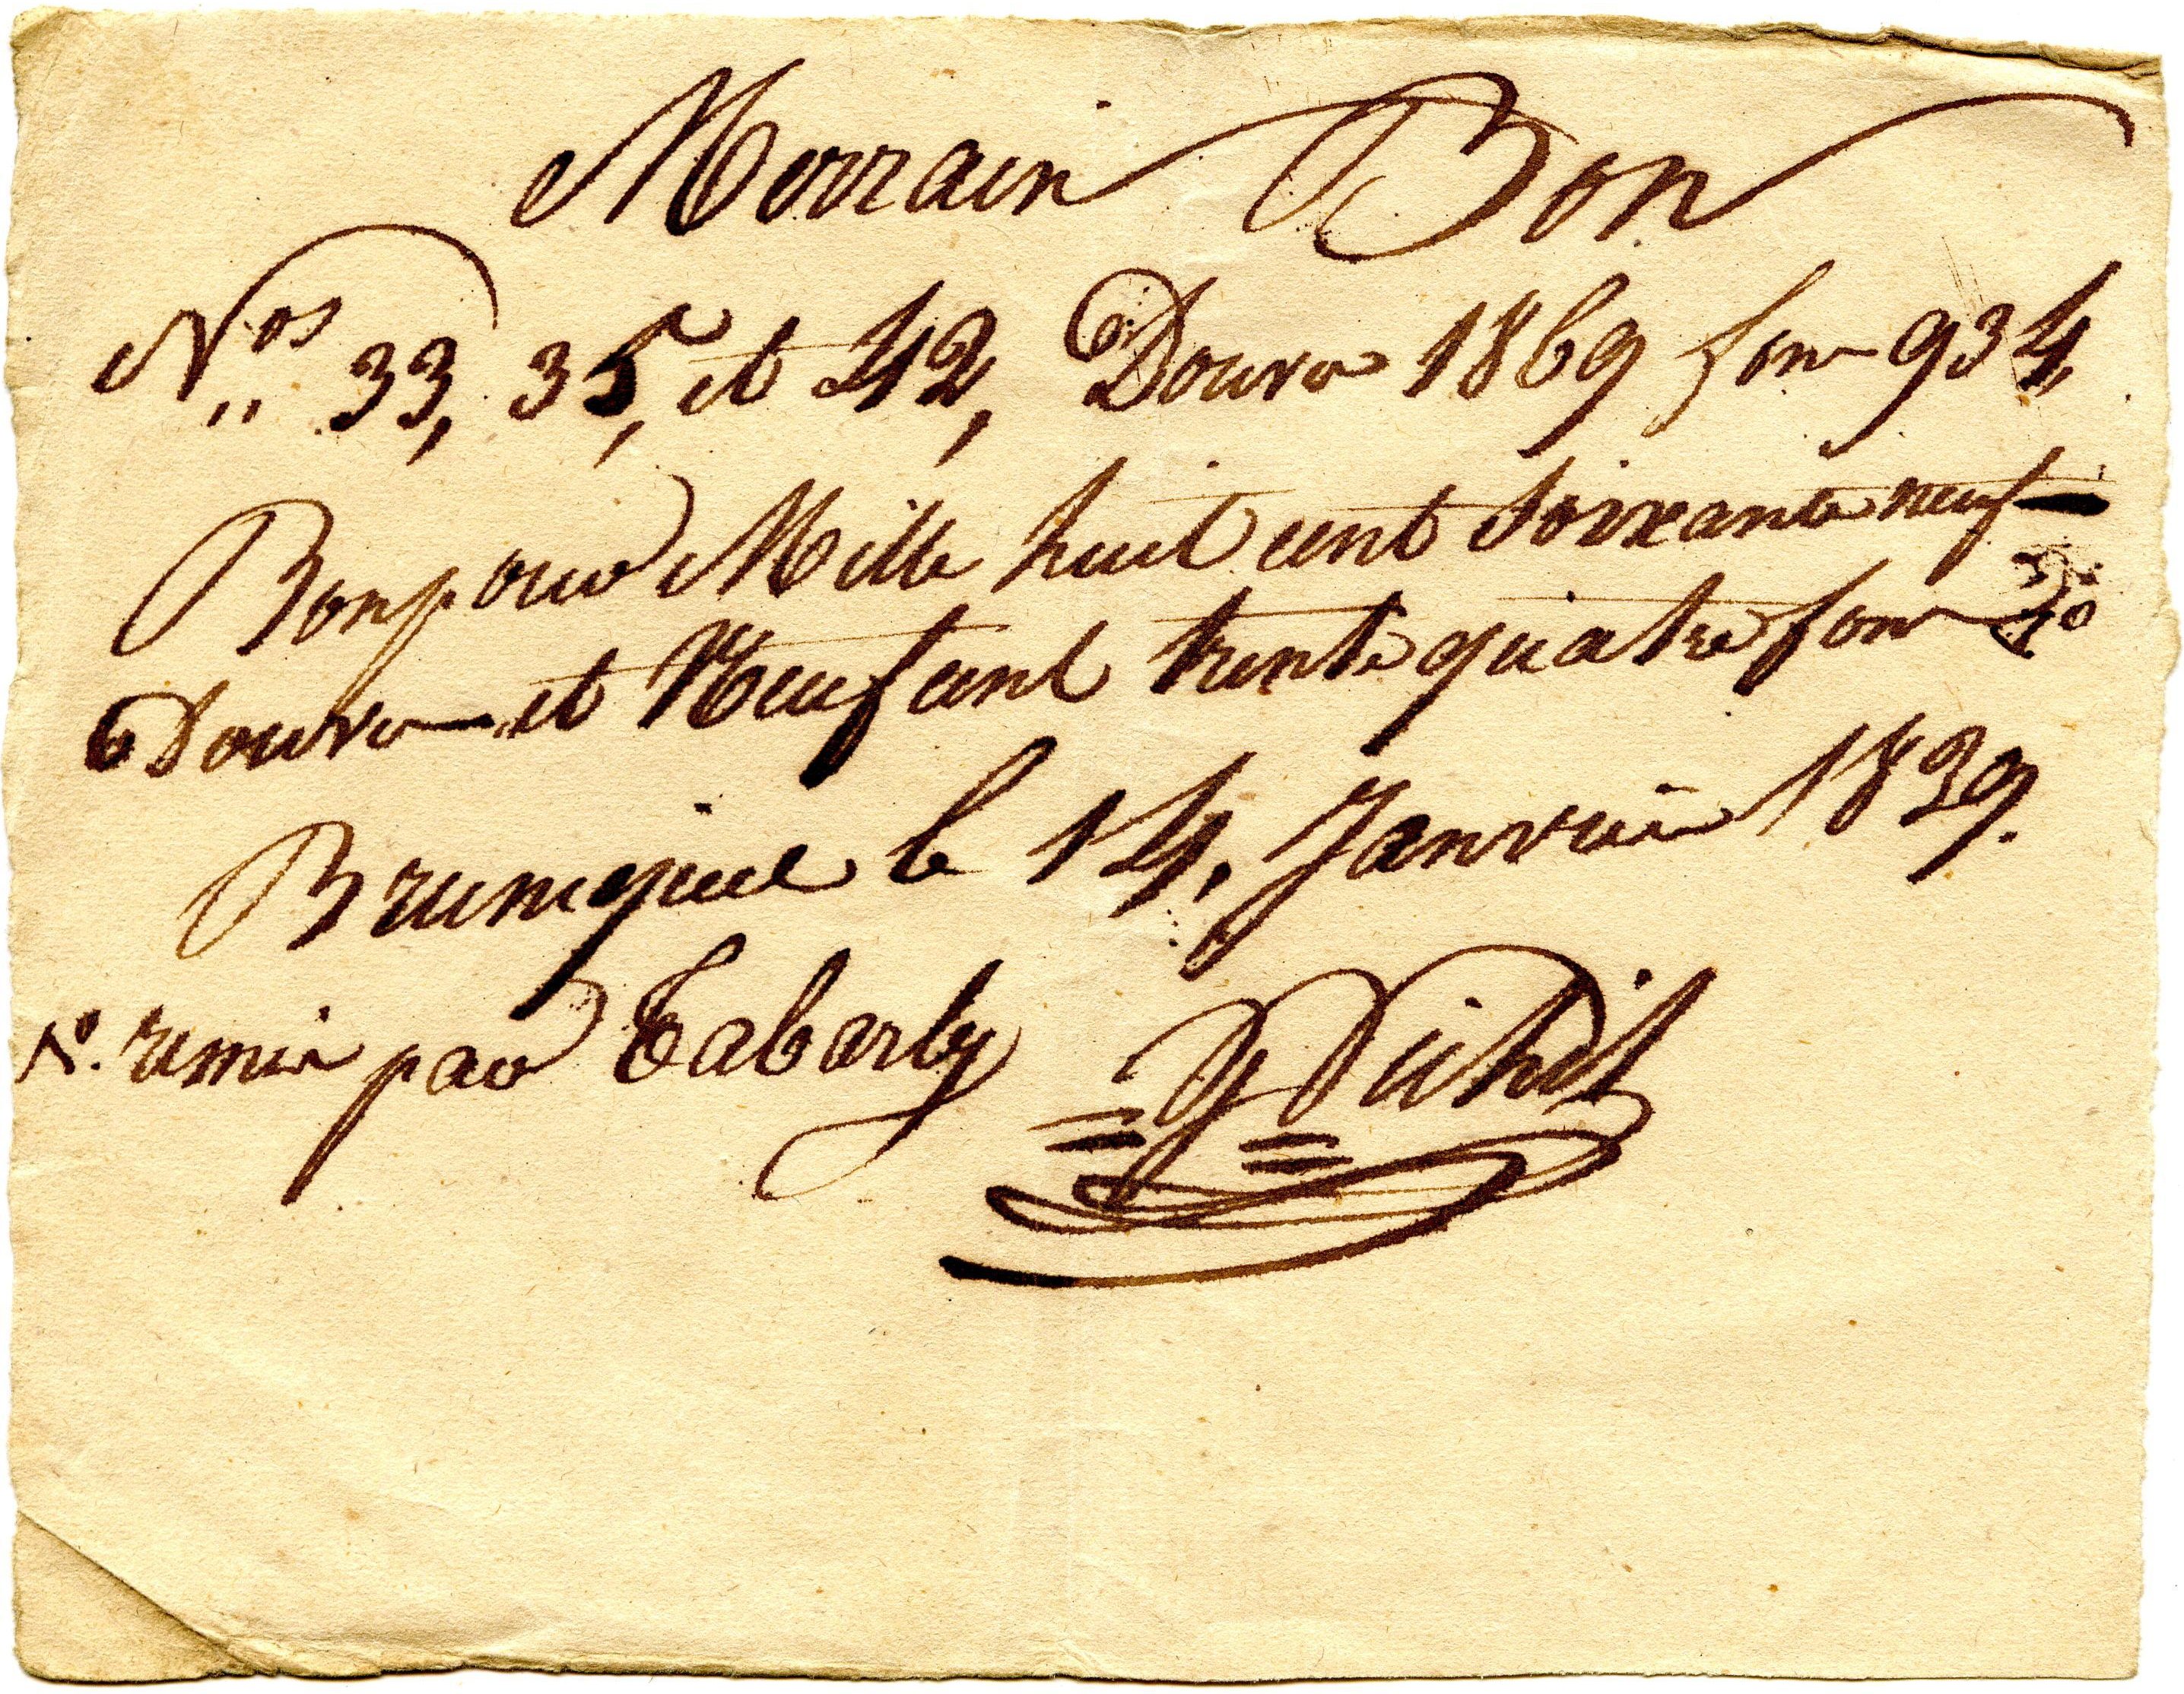 Merrain Bon
Nos 33, 35, et 42, Douves 1869 fons 934,
Bon pour Mille huit cent soixante neuf
Douves et Neuf cent trente quatre fons
Bruniquel le 14, Janvier 1839.
No. remis par Tabarly